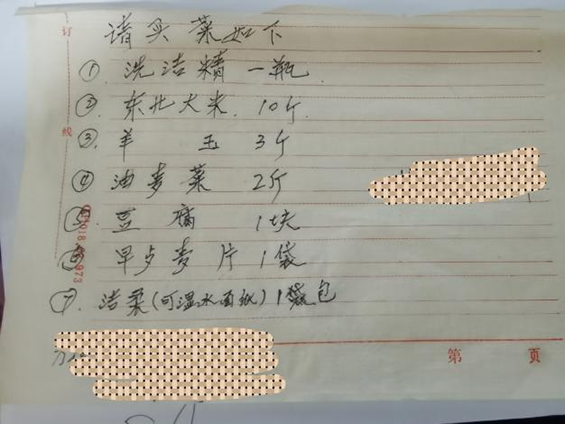 请买 菜如下
① 洗洁精 一瓶
② 东北大米. 10斤
③. 羊 玉 3斤
④ 油麦菜 2斤
⑤. 豆腐 1块
⑥ 早点麦片 1袋
⑦. 洁柔(可湿水面纸) 1袋包
第 页
订
线